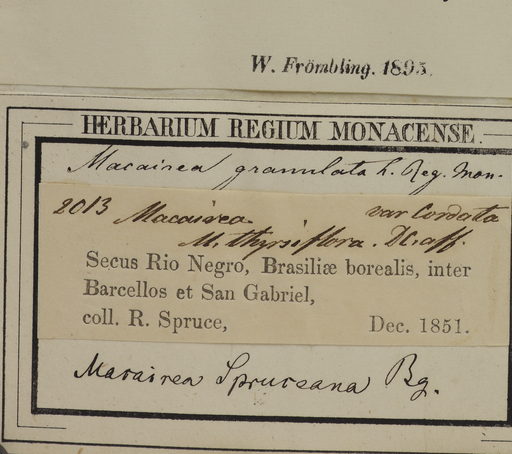 W. Frömbling. 1895.
HERBARIUM REGIUM MONACENSE.
Macairea granulata h. Reg. Mon.
2013 Macairea var Cordata
M. thyrsiflora. DC. aff.
Secus Rio Negro, Brasiliæ borealis, inter
Barcellos et San Gabriel,
coll. R. Spruce, Dec. 1851.
Macairea Spruceana Bg.